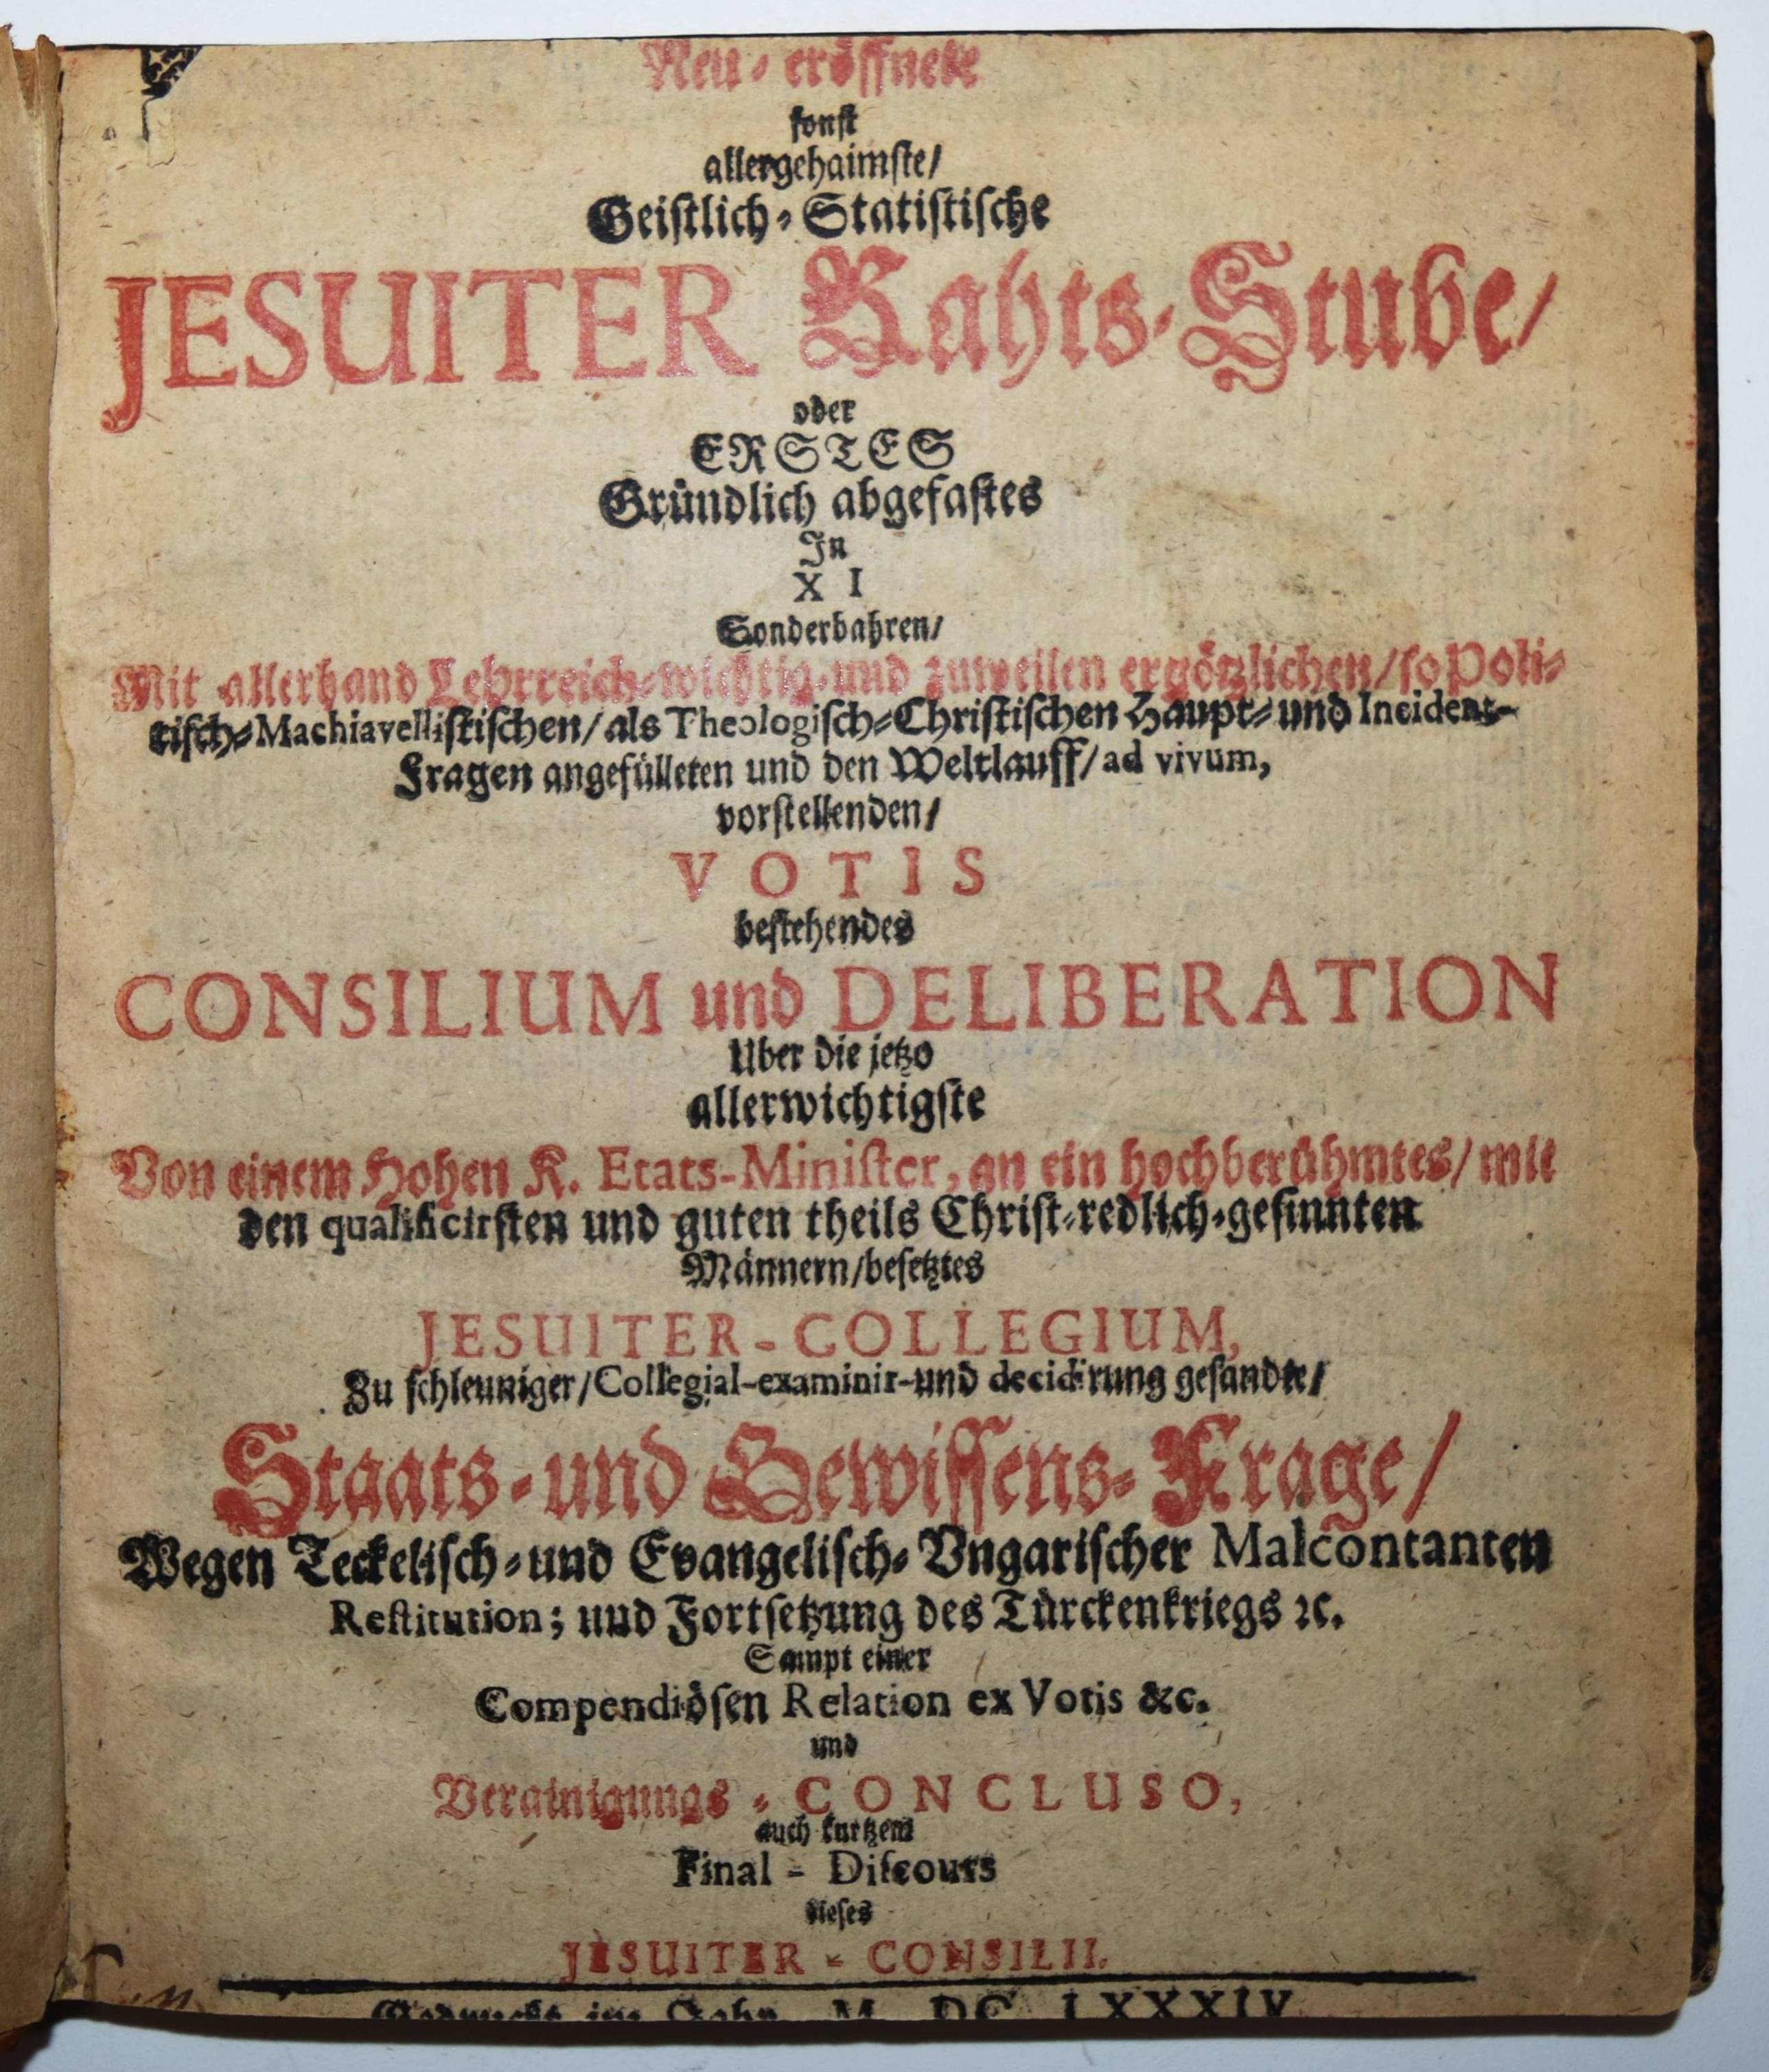 Neu-eröffnete
sonst
allergehaimste/
Geistlich-Statistische
JESUITER Rahts-Stube/
oder
ERSTES
Gründlich abgefastes
In
X I
Sonderbahren/
Mit allerhand Lehrreich-wichtig-und zuweilen ergötzlichen/so Poli-
tisch-Machiavellistischen/als Theologisch-Christischen Haupt-und Incident-
Fragen angefülleten und den Weltlauff/ad vivum,
vorstellenden/
VOTIS
bestehendes
CONSILIUM und DELIBERATION
Uber die jetzo
allerwichtigste
Von einem Hohen K. Etats-Minister, an ein hochberühmtes/mit
den qualificirsten und guten theils Christ-redlich-gesinnten
Männern/besetztes
JESUITER-COLLEGIUM,
Zu schleuniger/Collegial-examinir-und decidirung gesandte/
Staats-und Gewissens-Frage/
Wegen Teckelisch-und Evangelisch-Vngarischer Malcontanten
Restitution; und Fortsetzung des Türckenkriegs ꝛc.
Sampt einer
Compendiösen Relation ex Votis &c.
und
Verainigungs-CONCLUSO,
auch kurtzem
Final-Discours
dieses
JESUITER-CONSILII.
Gedruckt im Jahr M DC LXXXIV